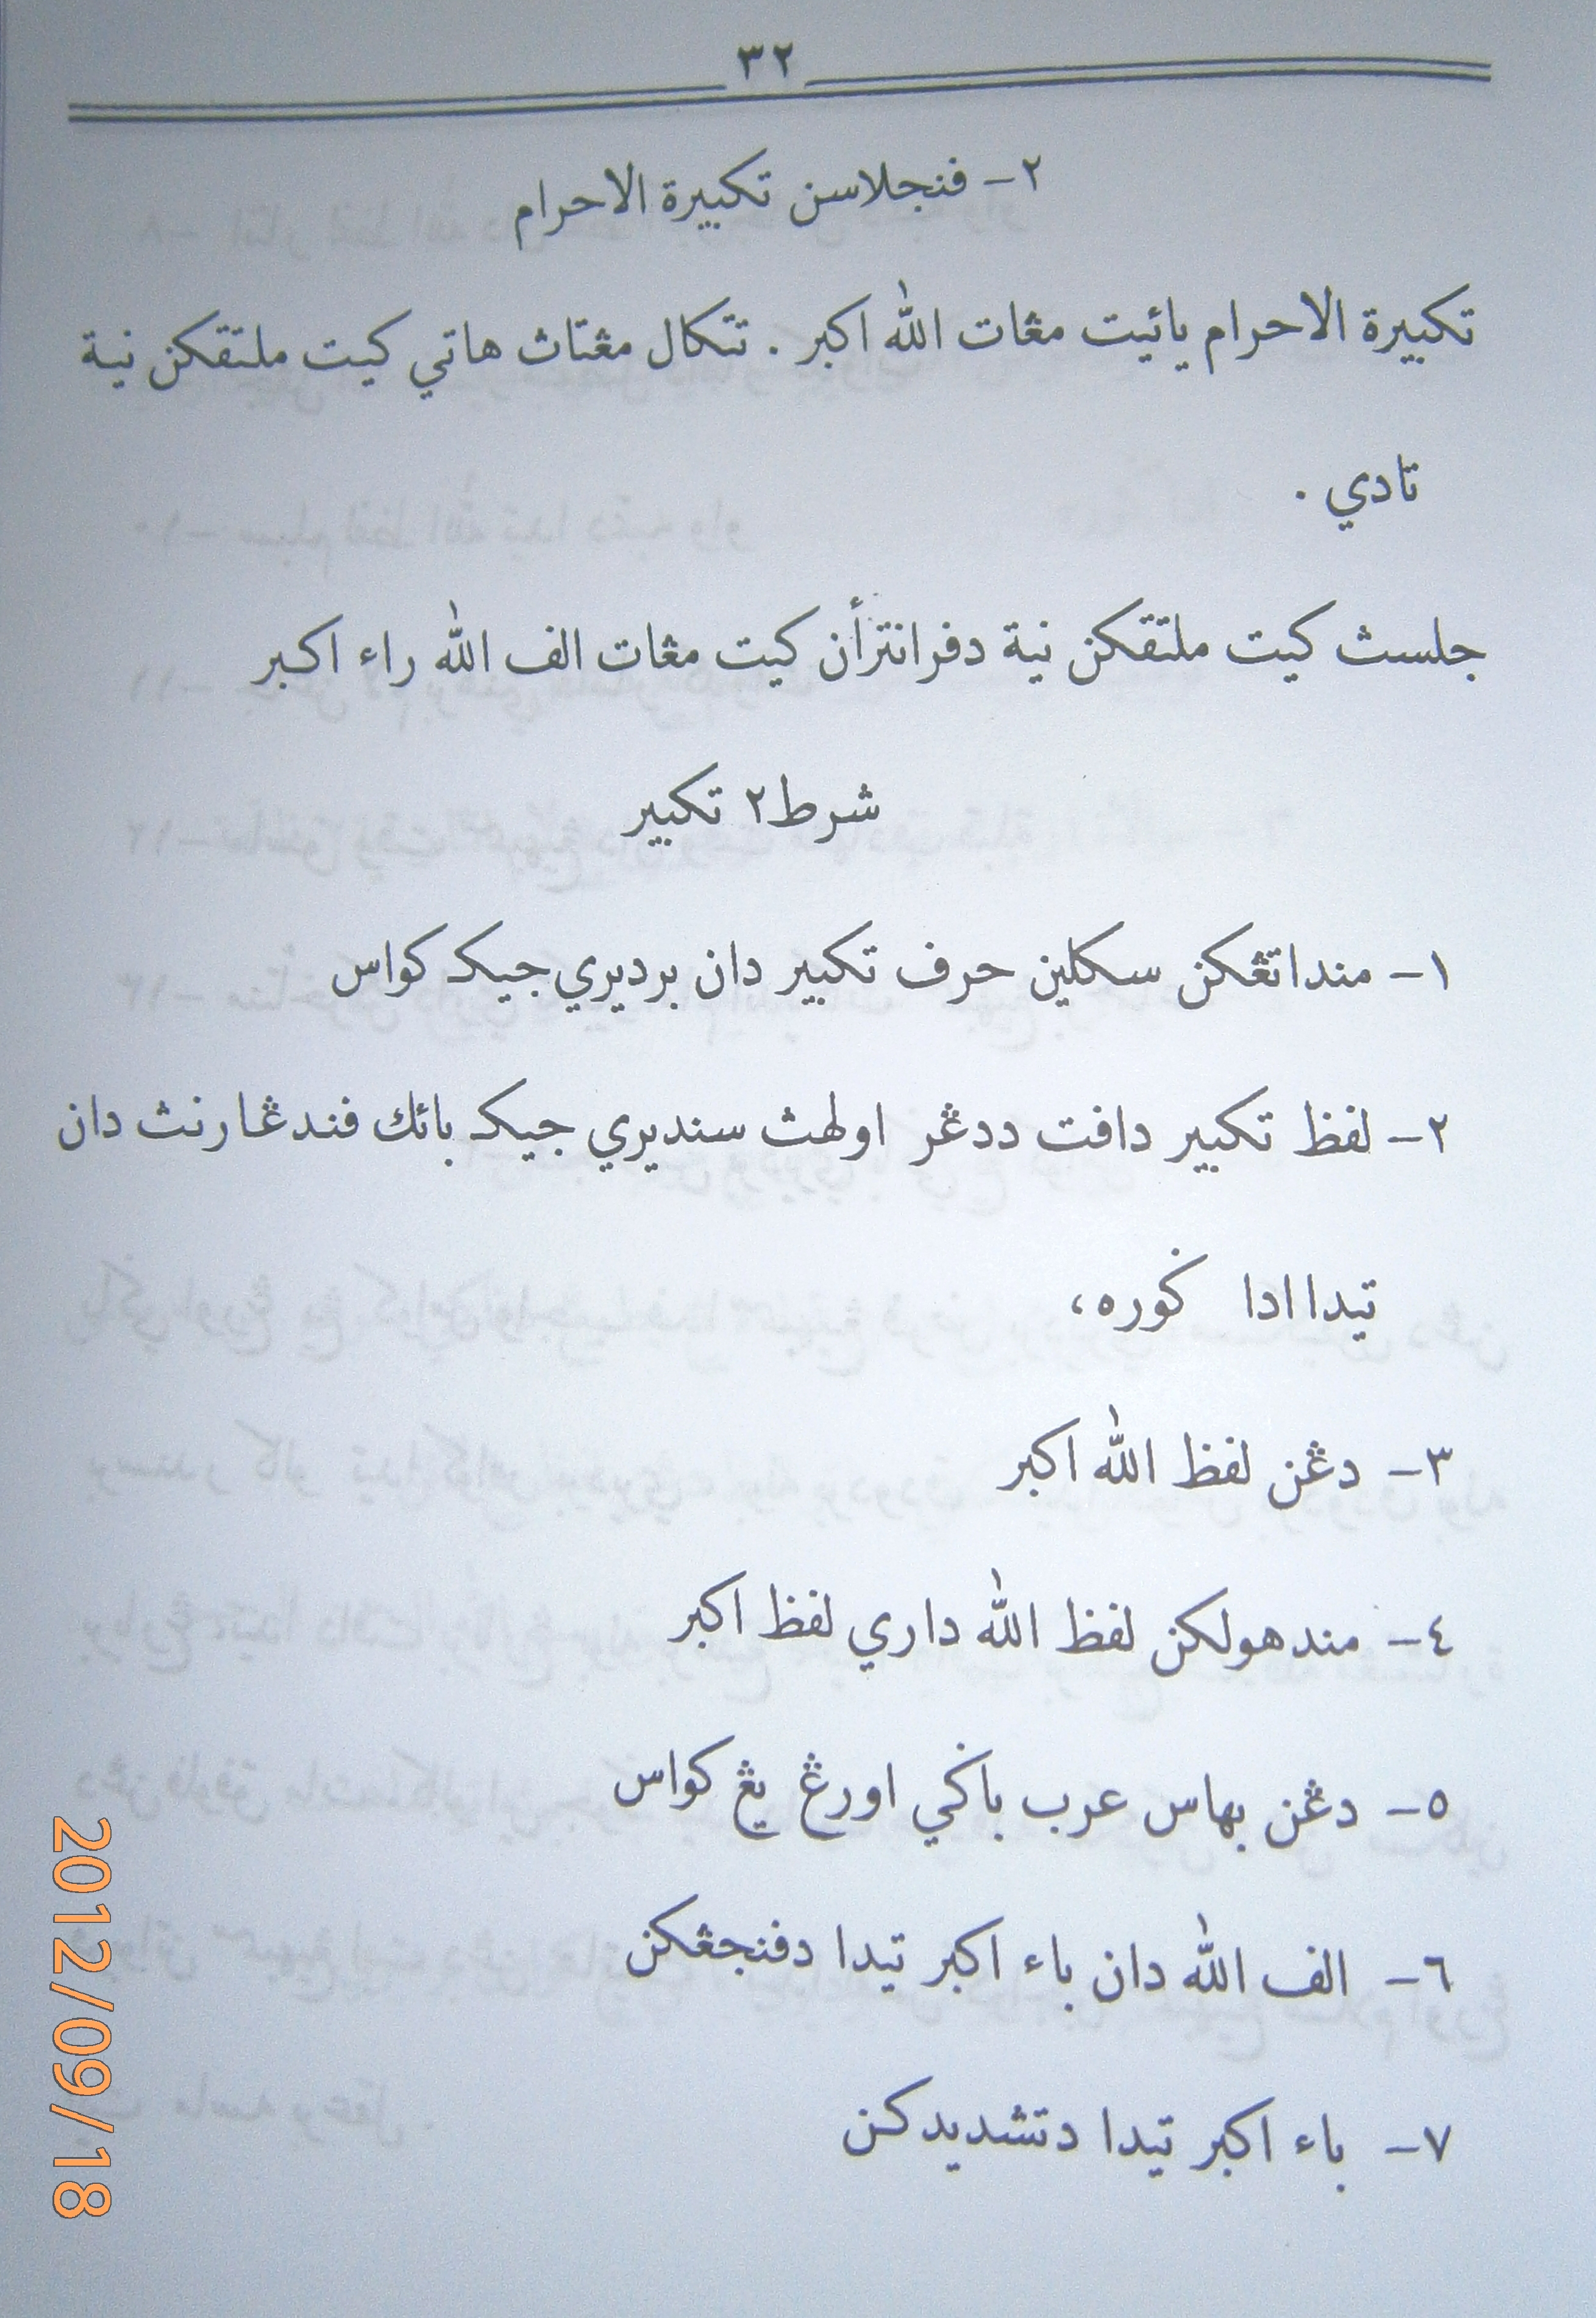 ٣٢
٢- فنجلاسن تكبيرة الاحرام
تكبيرة الاحرام يائيت مڠات الله اكبر . تتكال مڠتاث هاتي كيت ملتقكن نية
تادي .
جلسث كيت ملتقكن نية دفرانتراٴن كيت مڠات الف الله راء اكبر
شرط٢ تكبير
١- منداتڠكن سكلين حرف تكبير دان برديري جيكـ كواس
٢- لفظ تكبير دافت ددڠر اولهث سنديري جيكـ بائك فندڠارنث دان
تيدا ادا ݢوره،
٣- دڠن لفظ الله اكبر
٤- مندهولكن لفظ الله داري لفظ اكبر
٥- دڠن بهاس عرب باݢي اورڠ يڠ كواس
٦- الف الله دان باء اكبر تيدا دفنجڠكن
٧- باء اكبر تيدا دتشديدكن
2012/09/18